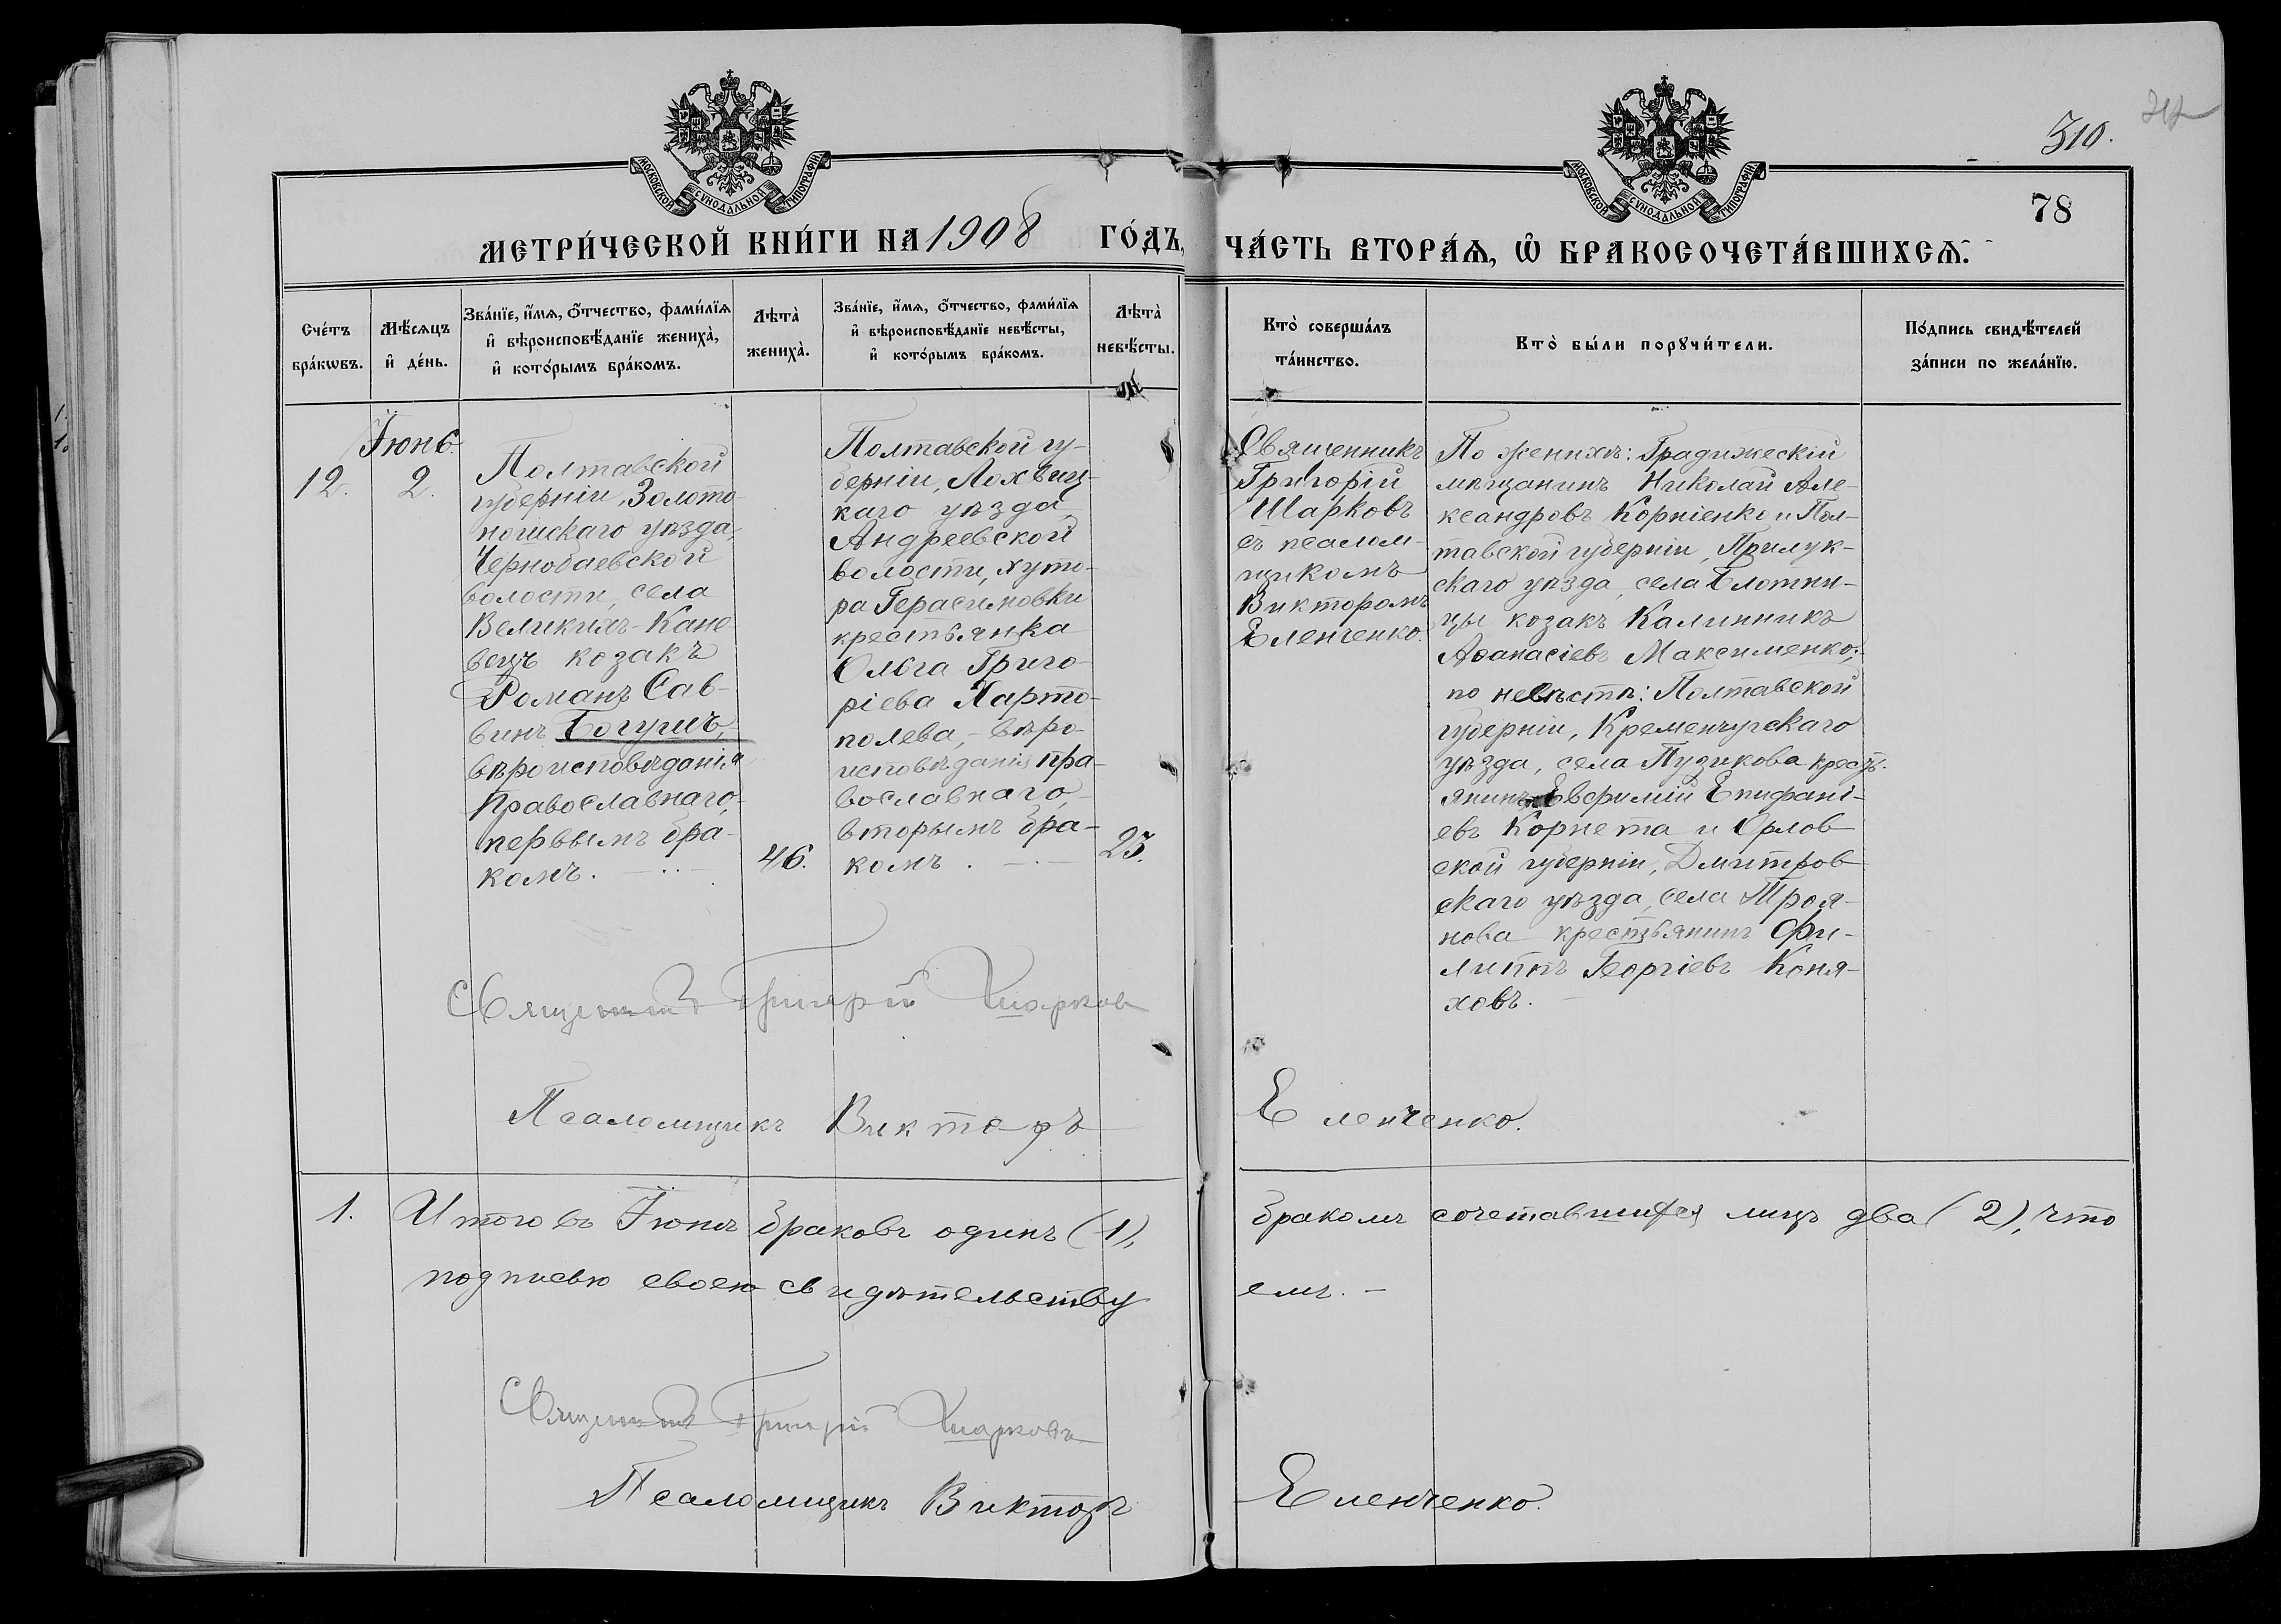 МОСКОВСКОЙ СУНОДАЛЬНОЙ ТИПОГРАФІИ
МОСКОВСКОЙ СУНОДАЛЬНОЙ ТИПОГРАФІИ
310.
78
МЕТРИ́ЧЕСКОЙ КНИ́ГИ НА 1908 ГО́ДЪ,
ЧА́СТЬ ВТОРА́Ѧ, Ѡ҆ БРАКОСОЧЕТА́ВШИХСѦ.
Сче́тъ бра́кѡвъ.
Мѣ́сяцъ и҆ де́нь.
Зва́нїе, и҆́мѧ, ѻ҆́тчество, фами́лїѧ
и҆ вѣроисповѣ́данїе жениха̀,
и҆ кото́рымъ бра́комъ.
Лѣта̀ жениха̀.
Зва́нїе, и҆́мѧ, ѻ҆́тчество, фами́лїѧ
и҆ вѣроисповѣ́данїе невѣ́сты,
и҆ кото́рымъ бра́комъ.
Лѣта̀ невѣ́сты.
Кто̀ соверша́лъ
та́инство.
Кто̀ бы́ли порꙋчи́тели.
По́дпись свидѣ́телей
за́писи по жела́нїю.
12.
Іюнь.
2.
Полтавской
губерніи, Золото-
ношскаго уѣзда,
Чернобаевской
волости, села
Великихъ-Кане-
вецъ козакъ
Романъ Сав-
винъ Богушъ,
вѣроисповѣданія
Православнаго,
первымъ бра-
комъ.
46.
Полтавской гу-
берніи, Лохвиц-
каго уѣзда,
Андреевской
волости, хуто-
ра Герасимовки
крестьянка
Ольга Григо-
ріева Харто-
полева, вѣро-
исповѣданія пра-
вославнаго,
вторымъ бра-
комъ.
23.
Священникъ
Григорій
Шарковъ
съ псалом-
щикомъ
Викторомъ
Еленченко.
По женихѣ: Градижескій
мѣщанинъ Николай Але-
ксандровъ Корніенко и Пол-
тавской губерніи, Прилук-
скаго уѣзда, села Блотни-
цы козакъ Калинникъ
Аѳанасіевъ Максименко;
по невѣстѣ: Полтавской
губерніи, Кременчугскаго
уѣзда, села Пузикова кресть-
янинъ Евфимій Епифані-
евъ Корнета и Орлов-
ской губерніи, Дмитров-
скаго уѣзда, села Троя-
нова крестьянинъ Фи-
липпъ Георгіевъ Коня-
ховъ.
Священникъ Григорій Шарковъ
Псаломщикъ Викторъ Еленченко.
1. Итого въ Іюнѣ браковъ одинъ (1), бракомъ сочетавшихся лицъ два (2), что
подписью своею свидѣтельствуемъ.
Священникъ Григорій Шарковъ
Псаломщикъ Викторъ Еленченко.